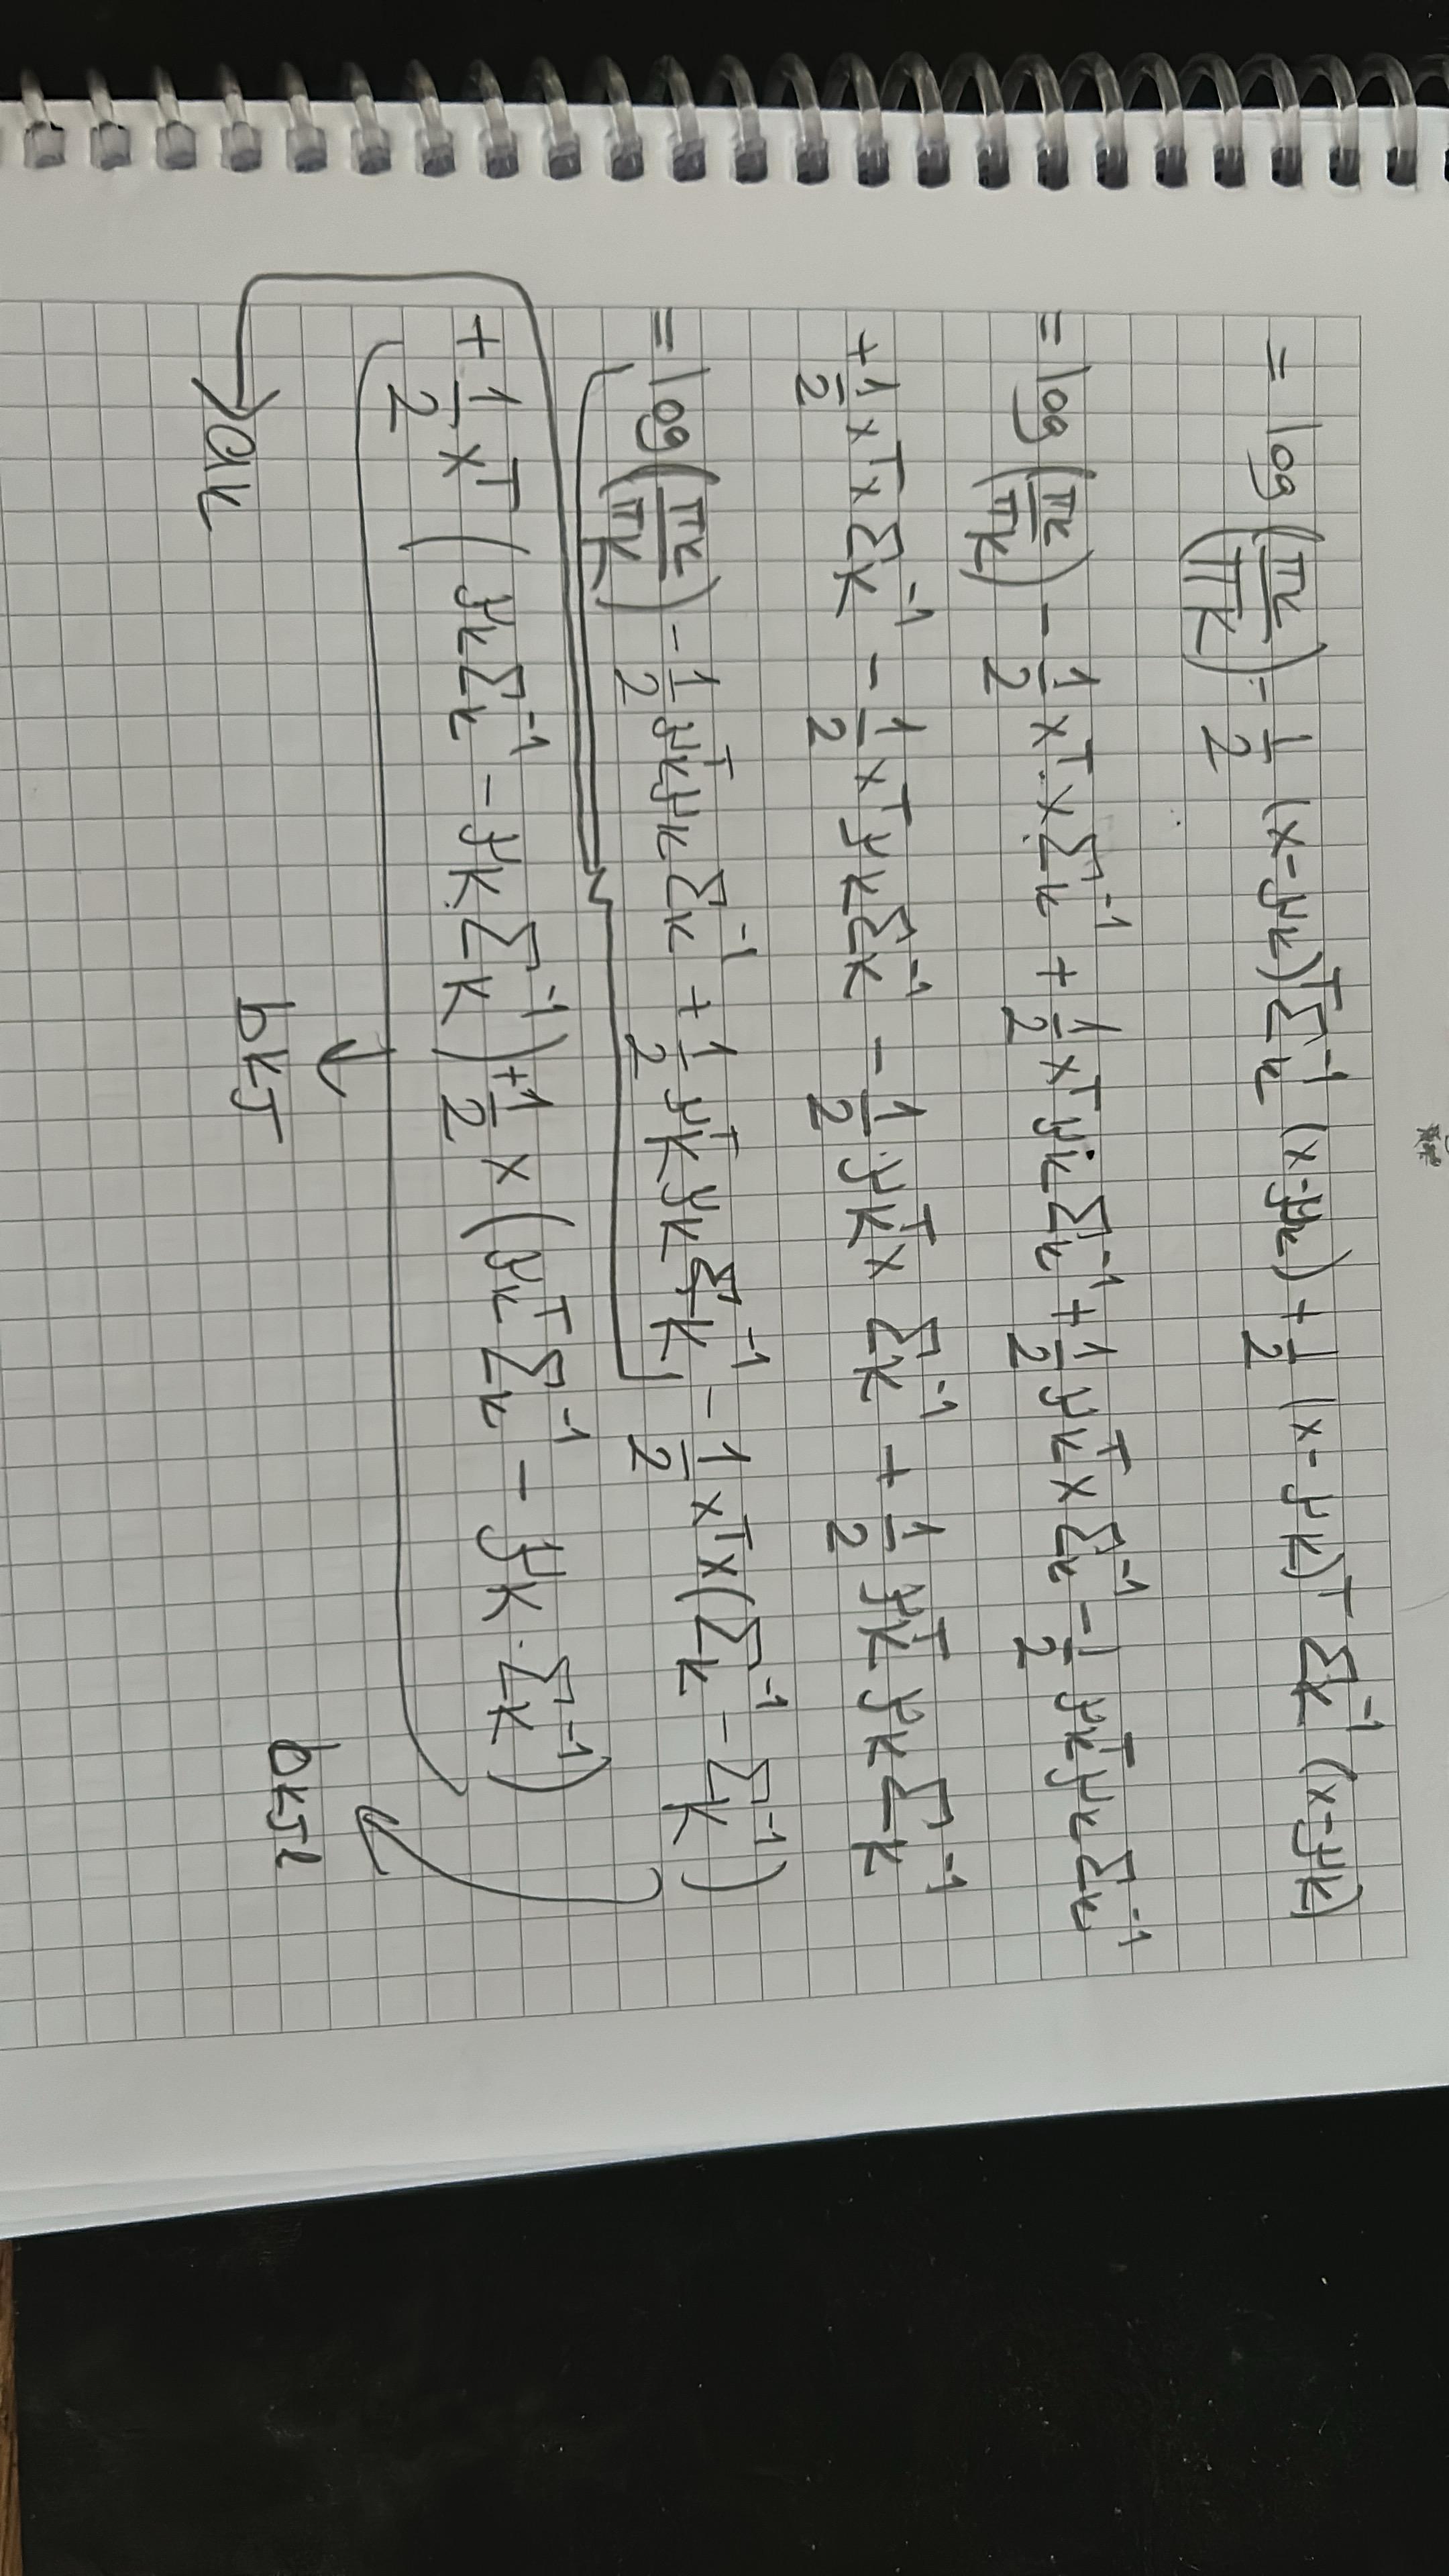 = log (πk/πK) - 1/2 (x-μk)ᵀ Σk⁻¹ (x-μk) + 1/2 (x-μK)ᵀ ΣK⁻¹ (x-μK)
= log (πk/πK) - 1/2 xᵀ·x Σk⁻¹ + 1/2 xᵀ μk Σk⁻¹ + 1/2 μkᵀ x Σk⁻¹ - 1/2 μkᵀ μk Σk⁻¹
+ 1/2 xᵀ x ΣK⁻¹ - 1/2 xᵀ μK ΣK⁻¹ - 1/2 μKᵀ x ΣK⁻¹ + 1/2 μKᵀ μK ΣK⁻¹
= log (πk/πK) - 1/2 μkᵀ μk Σk⁻¹ + 1/2 μKᵀ μK ΣK⁻¹ - 1/2 xᵀ x (Σk⁻¹ - ΣK⁻¹)
+ 1/2 xᵀ (μk Σk⁻¹ - μK ΣK⁻¹) + 1/2 x (μkᵀ Σk⁻¹ - μK · ΣK⁻¹)
→ ak ↓ bkJ bkJl